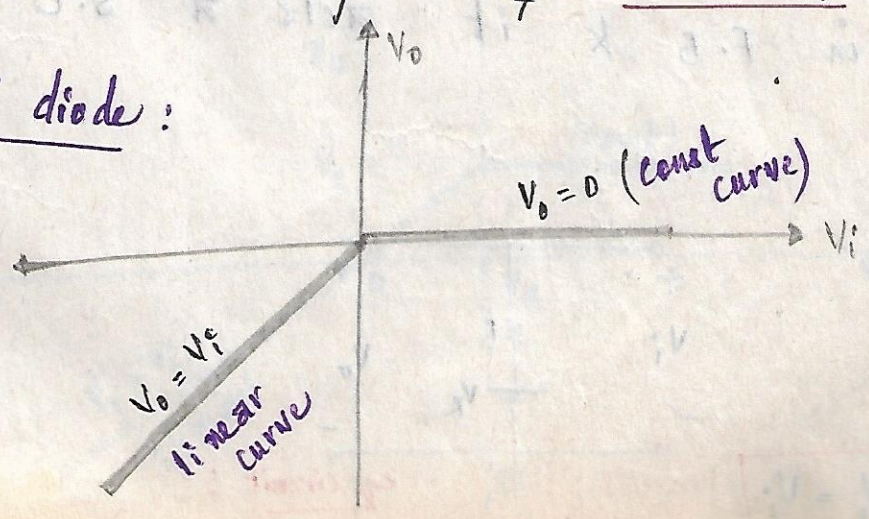 V₀
diode :
V₀ = 0 (const
curve)
Vi
V₀ = Vi
linear
curve